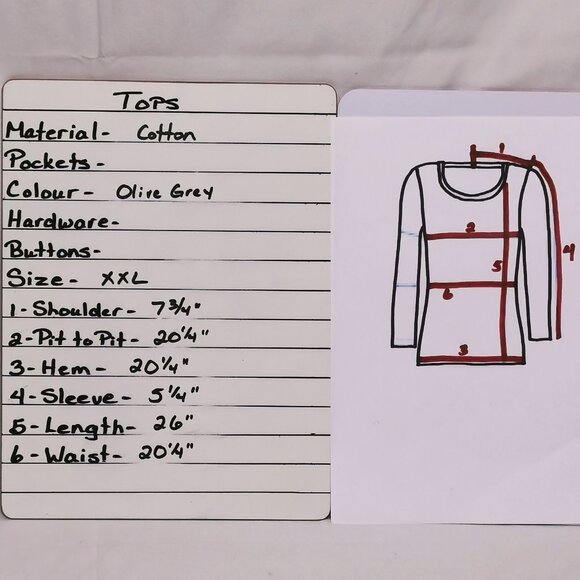 Tops
Material - Cotton
Pockets -
Colour - Olive Grey
Hardware -
Buttons -
Size - XXL
1 - Shoulder - 7 3/4"
2 - Pit to Pit - 20 1/4"
3 - Hem - 20 1/4"
4 - Sleeve - 5 1/4"
5 - Length - 26"
6 - Waist - 20 1/4"
1
2
4
5
6
3